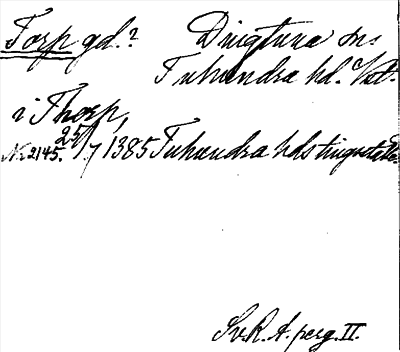 Torp gd.? Dingtuna sn.
Tuhundra hd. Vstm.
i Thorp,
Nr 2145. 25/7 1385 Tuhundra hds tingställe.
Sv.R.A. perg. II.